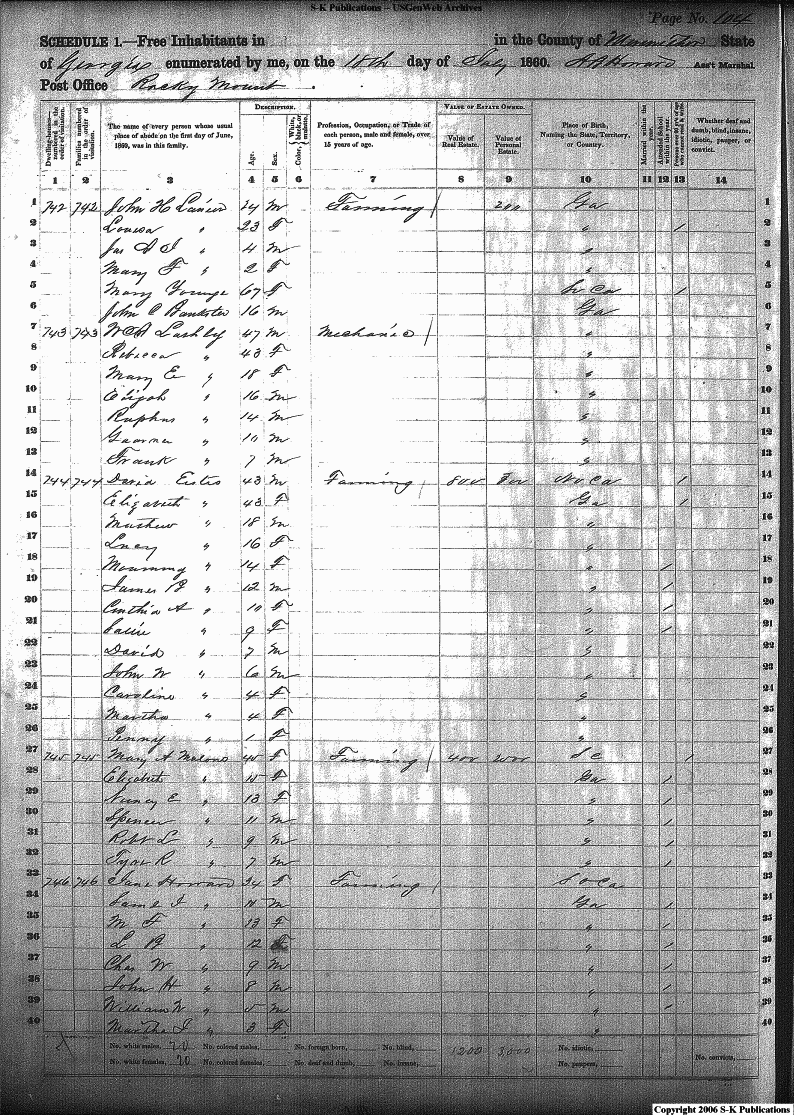 S-K Publications – USGenWeb Archives
Page No. 104
SCHEDULE 1.—Free Inhabitants in in the County of State
of Georgia enumerated by me, on the 18th day of July 1860. Howard Ass't Marshal
Post Office Rocky Mount.
DESCRIPTION. VALUE OF ESTATE OWNED.
Dwelling-houses numbered in the order of visitation.
Families numbered in the order of visitation.
The name of every person whose usual place of abode on the first day of June, 1860, was in this family.
Age.
Sex.
Color, White, black, or mulatto.
Profession, Occupation, or Trade of each person, male and female, over 15 years of age.
Value of Real Estate.
Value of Personal Estate.
Place of Birth, Naming the State, Territory, or Country.
Married within the year.
Attended School within the year.
Whether deaf and dumb, blind, insane, idiotic, pauper, or convict.
1 2 3 4 5 6 7 8 9 10 11 12 13 14
1 742 742 John H Lanier 24 M Farming 200 Ga 1
2 Louisa " 23 F " / 2
3 Jas " 4 M " 3
4 Mary F " 2 F " 4
5 Mary Younge 67 F / 5
6 John C 16 M Ga 6
7 743 743 Lashley 47 M Mechanic " 7
8 Rebecca " 43 F " 8
9 Mary E " 18 F " 9
10 Elijah " 16 M " 10
11 Ruphus " 14 M " 11
12 " M " 12
13 Frank " 7 M " 13
14 744 744 David Estes 43 M Farming 800 No Ca / 14
15 Elizabeth " 43 F Ga / 15
16 Mathew " 18 M " 16
17 Lucy " 16 F " 17
18 Mourning " 14 F " / 18
19 James B " 12 M " / 19
20 Cinthia A " 10 F " / 20
21 Sallie " 9 F " / 21
22 David " 7 M " 22
23 John W " 6 M " 23
24 Caroline " 4 F " 24
25 Martha " 4 F " 25
26 Penny " 1 F " 26
27 745 745 Mary A Malone 45 F Farming 400 S C / 27
28 Elizabeth " 15 F Ga / 28
29 Nancy E " 13 F " / 29
30 Spencer " 11 M " / 30
31 Robt L " 9 M " / 31
32 R " 7 M " / 32
33 746 746 Jane Howard 34 F Farming So Ca 33
34 " M Ga / 34
35 M F " 13 F " / 35
36 L B " 12 F " / 36
37 Chas W " 9 M " / 37
38 John H " 8 M " / 38
39 William W " 5 M " / 39
40 Martha J " 3 F " 40
No. white males, 20 No. colored males, No. foreign born, No. blind, 1200 3000 No. idiotic,
No. white females, 20 No. colored females, No. deaf and dumb, No. insane, No. paupers, No. convicts,
Copyright 2006 S-K Publications